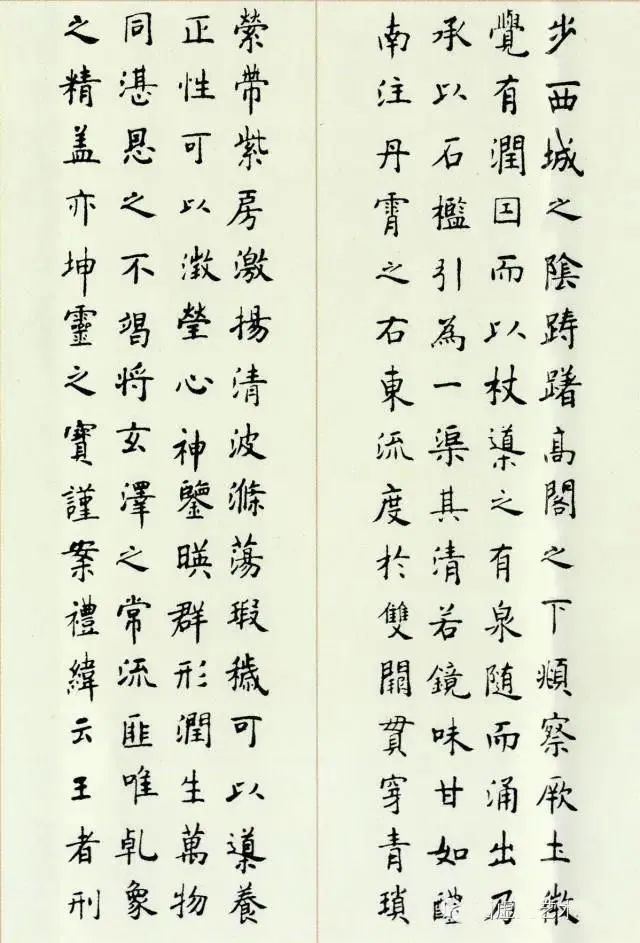 步西城之陰躊躇高閣之下頫察厥土微
覺有潤因而以杖導之有泉随而涌出乃
承以石檻引為一渠其清若鏡味甘如醴
南注丹霄之右東流度於雙闕貫穿青瑣
縈帶紫房激揚清波滌蕩瑕穢可以導養
正性可以澂瑩心神鑒暎群形潤生萬物
同湛恩之不竭将玄澤之常流匪唯乹象
之精盖亦坤靈之寶謹案禮緯云王者刑